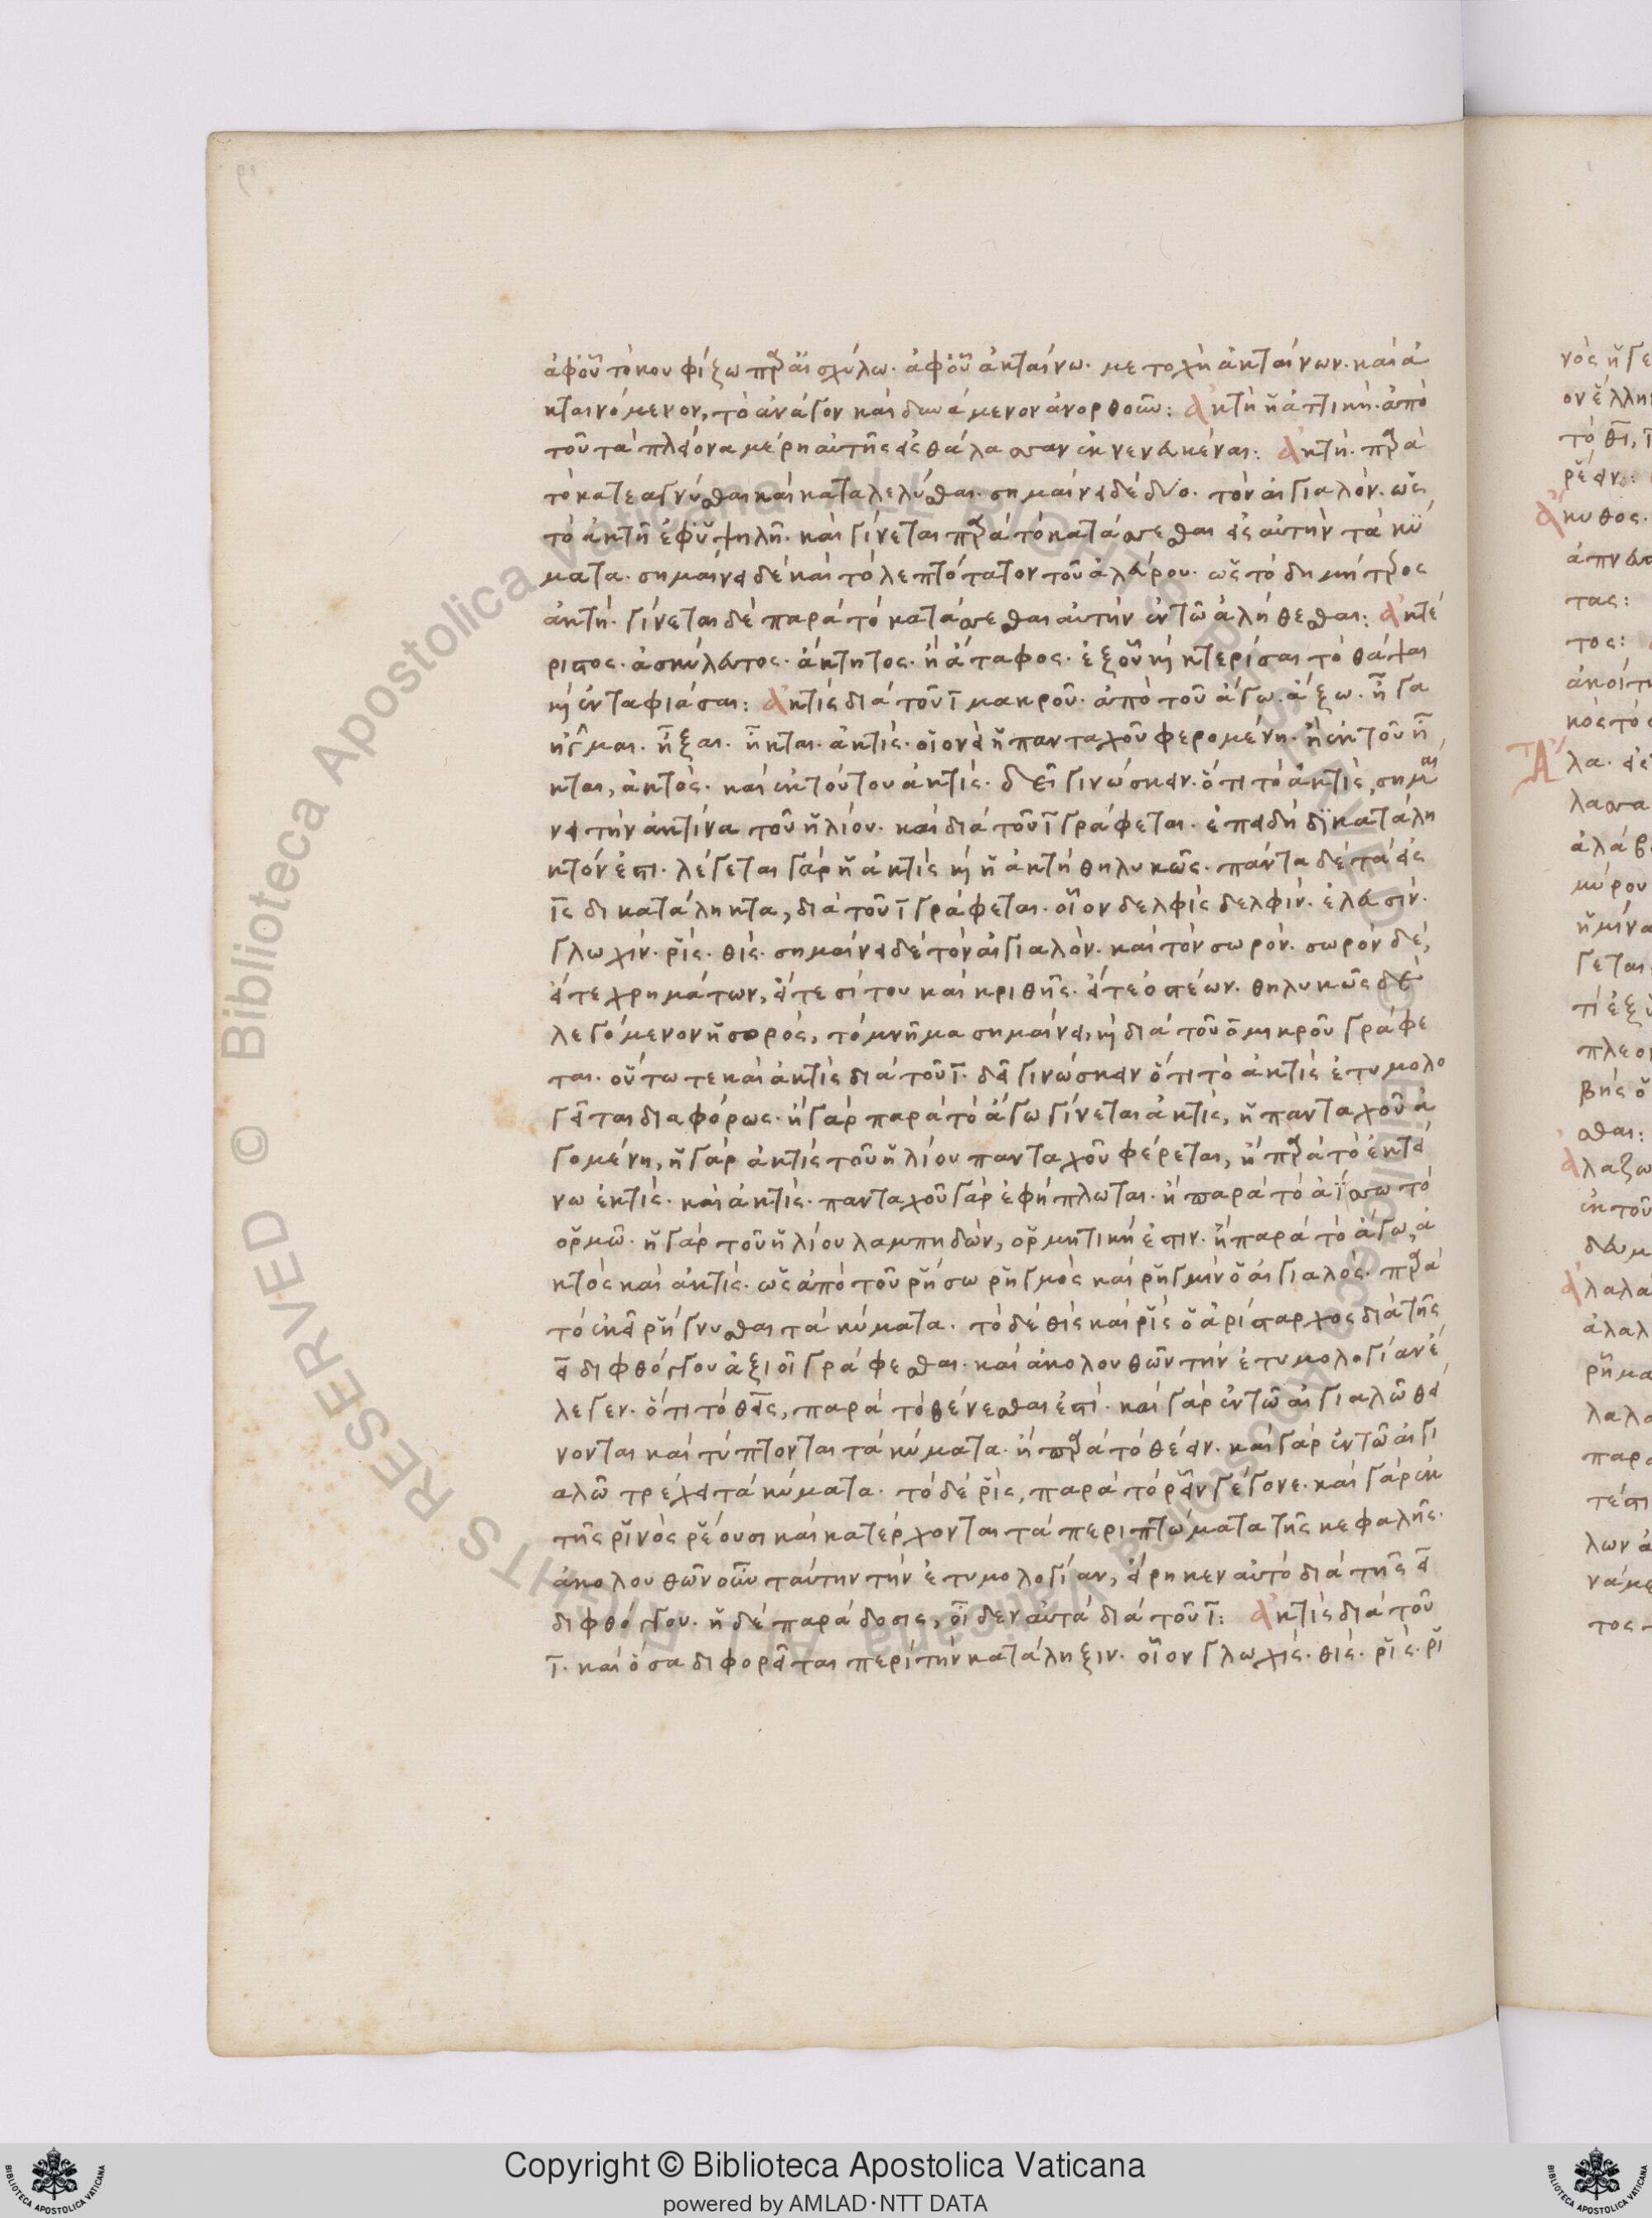 ἀφοῦ τὸ κουφίζω παρ' αἰσχύλω· ἀφοῦ ἀκταίνω· μετοχὴ ἀκταίνων· καὶ ἀ
κταινόμενον, τὸ ἀνάγον καὶ δυνάμενον ἀνορθοῦν: ἀκτὴ ἡ ἀττικὴ· ἀπὸ
τοῦ τὰ πλείονα μέρη αὐτῆς εἰς θάλασσαν ἐκνενευκέναι: ἀκτή· παρὰ
τὸ κατεαγνύσθαι καὶ καταλελύσθαι· σημαίνει δὲ δύο· τὸν αἰγιαλόν· ὡς
τὸ ἀκτῆ ἐφ' ὑψηλῆ· καὶ γίνεται παρὰ τὸ κατάσσεσθαι εἰς αὐτὴν τὰ κύ
ματα· σημαίνει δὲ καὶ τὸ λεπτότατον τοῦ ἀλεύρου· ὡς τὸ δημήτρος
ἀκτή· γίνεται δὲ παρὰ τὸ κατάσσεσθαι αὐτὴν ἐν τῶ ἀλήθεσθαι: ἀκτέ
ριστος· ἀσκύλευτος· ἄκτητος· ἢ ἄταφος· ἐξ οὗ καὶ κτερίσαι τὸ θάψαι
καὶ ἐνταφιάσαι: ἀκτὶς διὰ τοῦ ῑ μακροῦ· ἀπὸ τοῦ ἄγω· ἄξω· ἦγα
ἦγμαι· ἦξαι· ἦκται· ἀκτίς· οἱονεὶ ἡ πανταχοῦ φερομένη· ἢ ἐκ τοῦ ἦ
κται, ἀκτός· καὶ ἐκ τούτου ἀκτίς· δεῖ γινώσκειν· ὅτι τὸ ἀκτίς, σημαί
νει τὴν ἀκτίνα τοῦ ἡλίου· καὶ διὰ τοῦ ῑ γράφεται· ἐπειδὴ δικατάλη
κτόν ἐστι· λέγεται γὰρ ἡ ἀκτὶς καὶ ἡ ἀκτὴ θηλυκῶς· πάντα δὲ τὰ εἰς
ῑς δικατάληκτα, διὰ τοῦ ῑ γράφεται· οἷον δελφίς δελφίν· ἐλευσίν·
γλωχίν· ῥίς· θίς· σημαίνει δὲ τὸν αἰγιαλόν· καὶ τὸν σωρόν· σωρὸν δέ,
εἴτε χρημάτων, εἴτε σίτου καὶ κριθῆς· εἴτε ὀστέων· θηλυκῶς δὲ
λεγόμενον ἡ σορός, τὸ μνῆμα σημαίνει, καὶ διὰ τοῦ ο μικροῦ γράφε
ται· οὕτω τε καὶ ἀκτὶς διὰ τοῦ ῑ· δεῖ γινώσκειν ὅτι τὸ ἀκτὶς ἐτυμολο
γεῖται διαφόρως· ἢ γὰρ παρὰ τὸ ἄγω γίνεται ἀκτίς, ἡ πανταχοῦ ἀ
γομένη, ἡ γὰρ ἀκτὶς τοῦ ἡλίου πανταχοῦ φέρεται, ἢ παρὰ τὸ ἐκτεί
νω ἐκτίς· καὶ ἀκτίς· πανταχοῦ γὰρ ἐφήπλωται· ἢ παρὰ τὸ ἀΐσσω τὸ
ὁρμῶ· ἡ γὰρ τοῦ ἡλίου λαμπηδών, ὁρμητική ἐστιν· ἢ παρὰ τὸ ἄγω, ἀ
κτὸς καὶ ἀκτίς· ὡς ἀπὸ τοῦ ῥήσω ῥηγμὸς καὶ ῥηγμὶν ὁ αἰγιαλός· παρὰ
τὸ ἐκεῖ ῥήγνυσθαι τὰ κύματα· τὸ δὲ θὶς καὶ ῥὶς ὁ ἀρίσταρχος διὰ τῆς
ει διφθόγγου ἀξιοῖ γράφεσθαι· καὶ ἀκολουθῶν τὴν ἐτυμολογίαν ἔ
λεγεν· ὅτι τὸ θεῖς, παρὰ τὸ θένεσθαι ἐστί· καὶ γὰρ ἐν τῶ αἰγιαλῶ θεί
νονται καὶ τύπτονται τὰ κύματα· ἢ παρὰ τὸ θέειν· καὶ γὰρ ἐν τῶ αἰγι
αλῶ τρέχει τὰ κύματα· τὸ δὲ ῥίς, παρὰ τὸ ῥεῖν γέγονε· καὶ γὰρ ἐκ
τῆς ῥινὸς ῥέουσι καὶ κατέρχονται τὰ περιπτώματα τῆς κεφαλῆς·
ἀκολουθῶν οὖν ταύτην τὴν ἐτυμολογίαν, εἴρηκεν αὐτὸ διὰ τῆς ει
διφθόγγου· ἡ δὲ παράδοσις, οἶδεν αὐτὰ διὰ τοῦ ῑ: ἀκτὶς διὰ τοῦ
ῑ· καὶ ὅσα διφορεῖται περὶ τὴν κατάληξιν· οἷον γλωχίς· θίς· ῥίς· ῥι
νὸς ἡ γε
ὀν ἕλλη
ρέειν:
κυθος·
τας:
τος:
κὸς τὸ
λα· εἰ
λασσα
ἀλάβ
μύρου
ἡμίνα
γεται
τί ἐξ
πλεο
βὴς ὁ
σθαι:
ἀλαζω
ἐκ τοῦ
ἀλαλα
ἀλαλ
ῥῆμα
λαλα
παρ
λων
τος
© Biblioteca Apostolica Vaticana ALL RIGHTS RESERVED
Copyright © Biblioteca Apostolica Vaticana
powered by AMLAD·NTT DATA
BIBLIOTECA APOSTOLICA VATICANA
BIBLIOTECA APOSTOLICA VATICANA